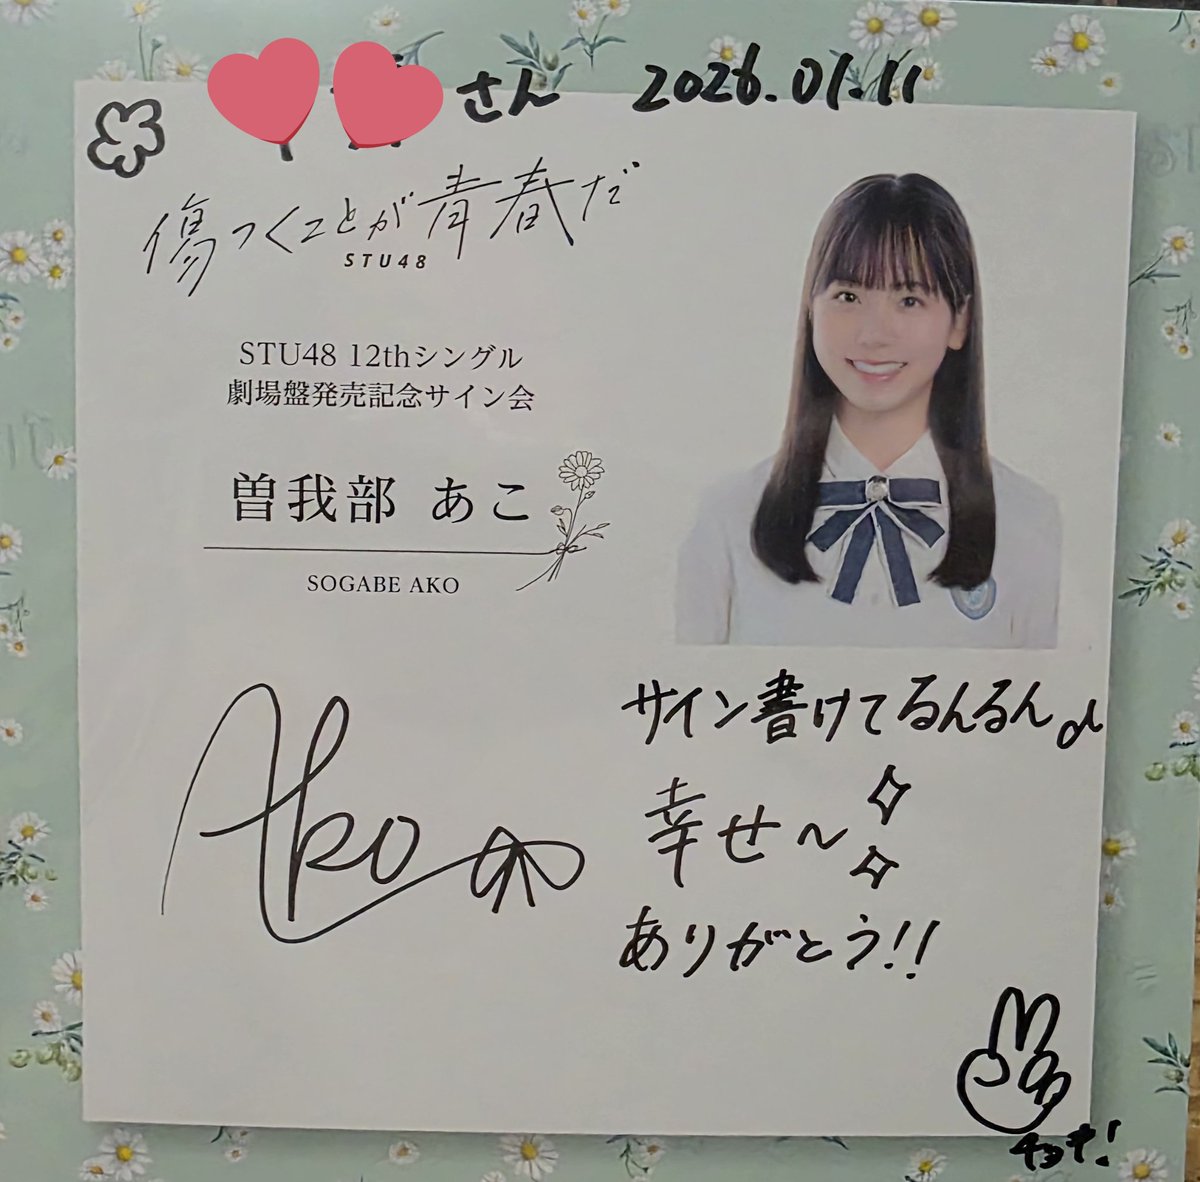 さん 2026.01.11
傷つくことが青春だ
STU48
STU48 12thシングル
劇場盤発売記念サイン会
曽我部 あこ
SOGABE AKO
Ako
サイン書けてるんるん♪
幸せ~
ありがとう!!
チョキ!